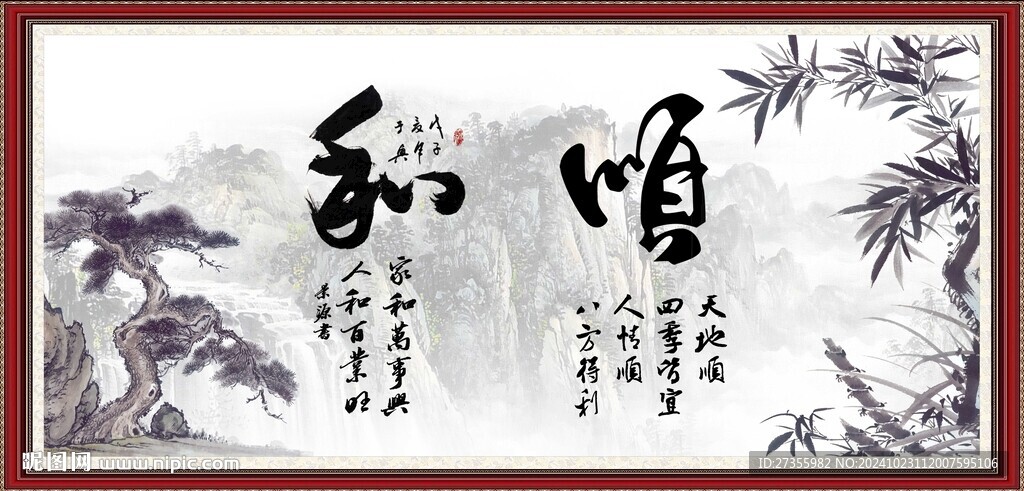 順
天地順
四季皆宜
人情順
八方得利
和
戊子
家和萬事興
人和百業旺
榮源書
昵图网 www.nipic.com
ID:27355982 NO:20241023112007595106